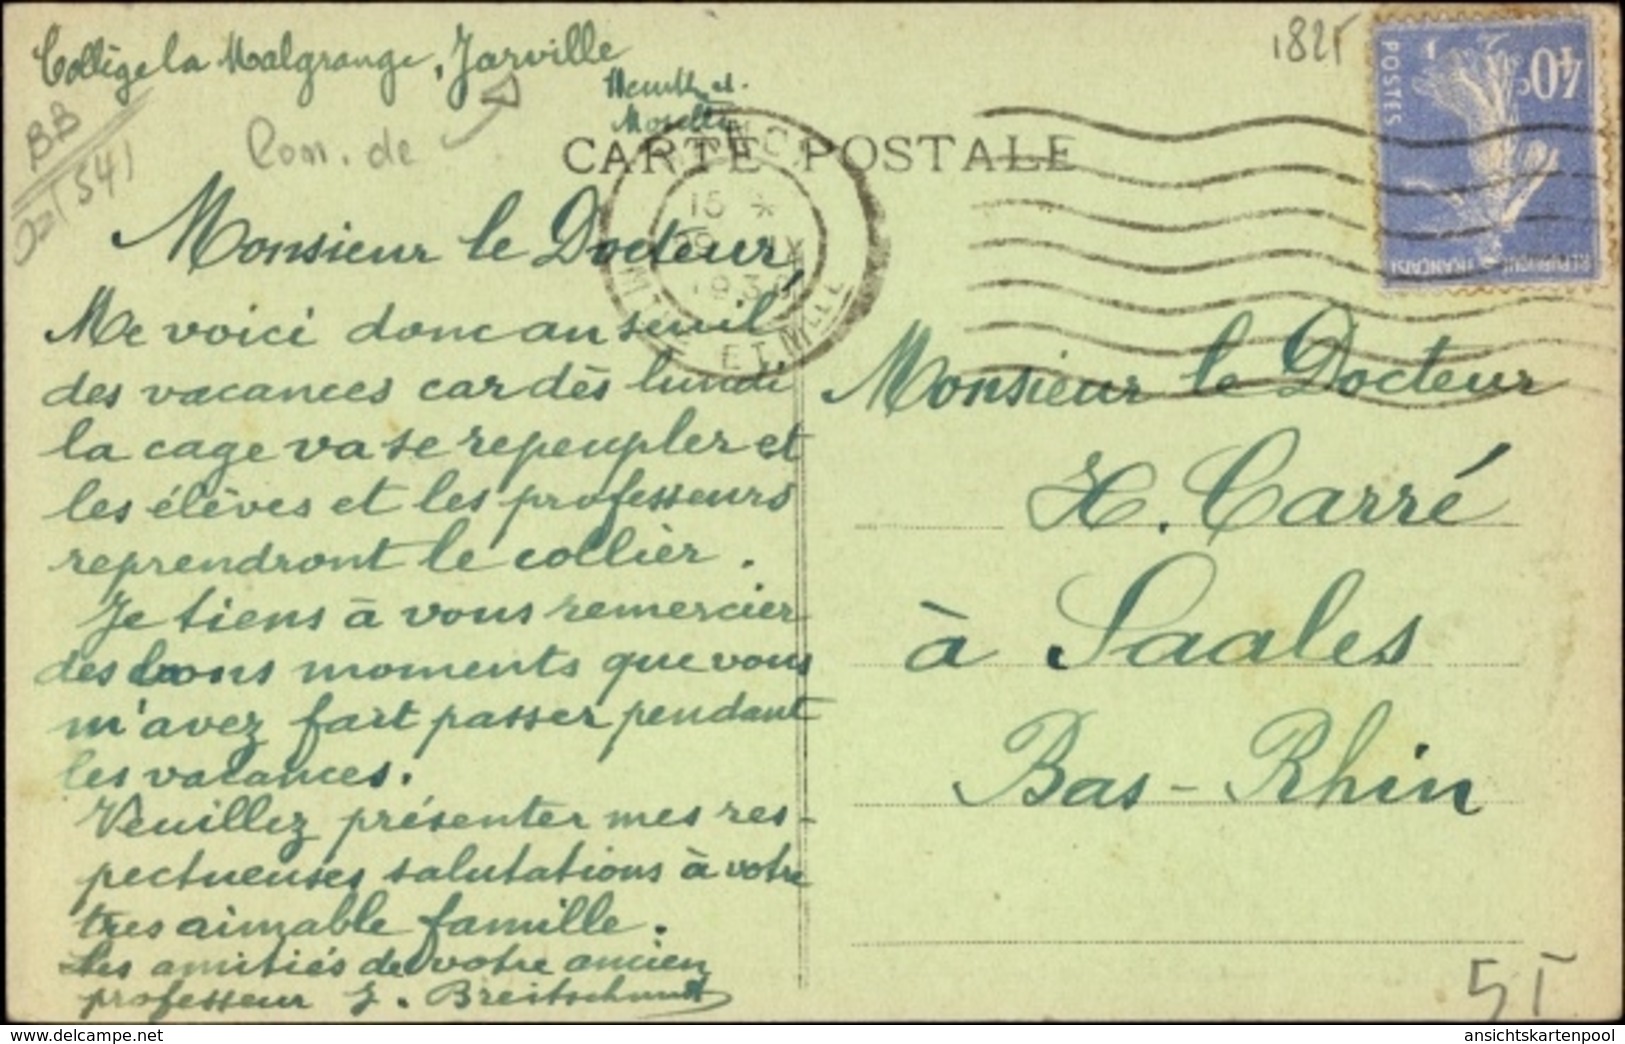 Collège la Malgrange, Jarville
Meurthe et
Moselle
Com. de
BB
1541
182T
CARTE POSTALE
POSTES
40c
REPUBLIQUE FRANÇAISE
15 *
29 IX
193
ET MLLE
Monsieur le Docteur,
Me voici donc au seuil
des vacances car dès lundi
la cage va se repeupler et
les élèves et les professeurs
reprendront le collier.
Je tiens à vous remercier
des bons moments que vous
m'avez fait passer pendant
les vacances.
Veuillez présenter mes res-
pectueuses salutations à votre
tres aimable famille.
Les amitiés de votre ancien
professeur J. Breitschmidt
Monsieur le Docteur
H. Carré
à Saales
Bas-Rhin
5T
www.delcampe.net
ansichtskartenpool